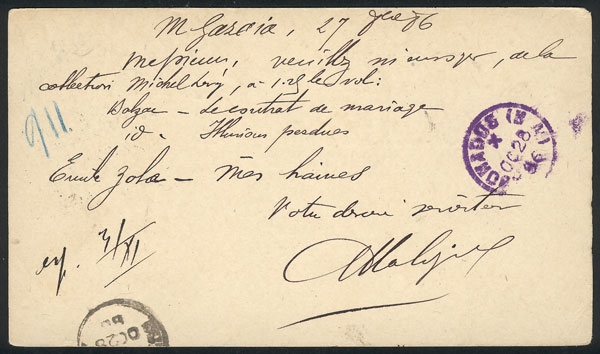 M Garcia, 27 96
Messieurs, veuillez m'envoyer, de la
collection Michel Lévy, à 1.25 le vol:
Balzac – le contrat de mariage
id – Illusions perdues
Emile Zola – Mes haines
Votre dévoué serviteur
911
OC 28
96
OC 28